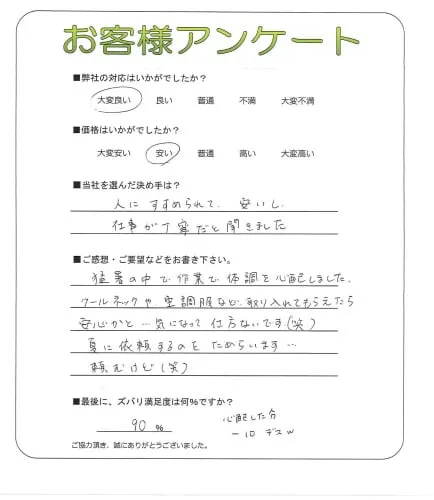 お客様アンケート
■弊社の対応はいかがでしたか？
大変良い 良い 普通 不満 大変不満
■価格はいかがでしたか？
大変安い 安い 普通 高い 大変高い
■当社を選んだ決め手は？
人にすすめられて、安いし、
仕事が丁寧だと聞きました
■ご感想・ご要望などをお書き下さい。
猛暑の中で作業で体調を心配しました、
クールネックや、空調服など、取り入れてもらえたら
安心かと…気になって仕方ないです（笑）
夏に依頼するのをためらいます…
頼むけど（笑）
■最後に、ズバリ満足度は何％ですか？
90 %
心配した分
－10 デスw
ご協力頂き、誠にありがとうございました。